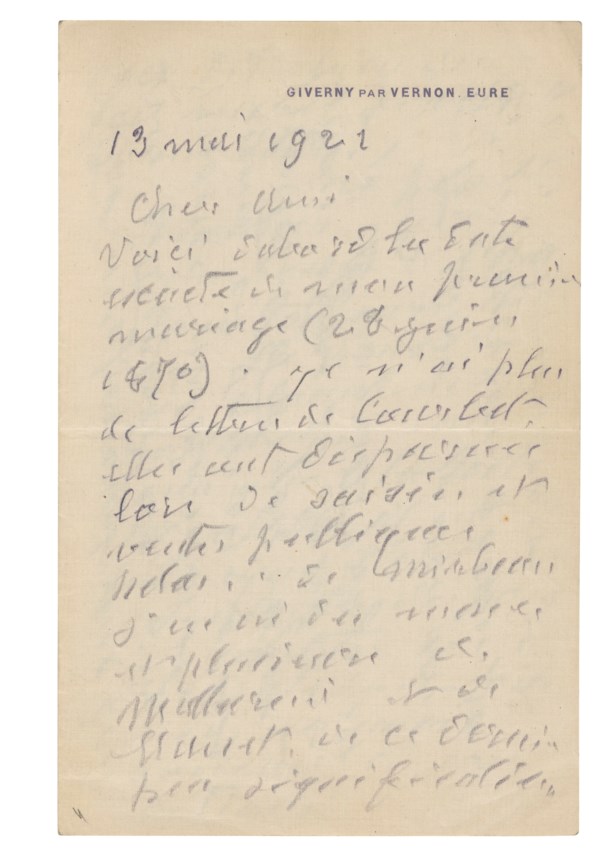 GIVERNY PAR VERNON. EURE
13 mai 1921
Cher Ami
Voici d'abord la date
exacte de mon premier
mariage (28 juin
1870). je n'ai plus
de lettres de Courbet,
elles ont disparues
lors de saisies et
ventes publiques
hélas. de Mirbeau
j'en ai des masses
et plusieurs de
Mallarmé et de
Manet. de ce dernier
peu significatives